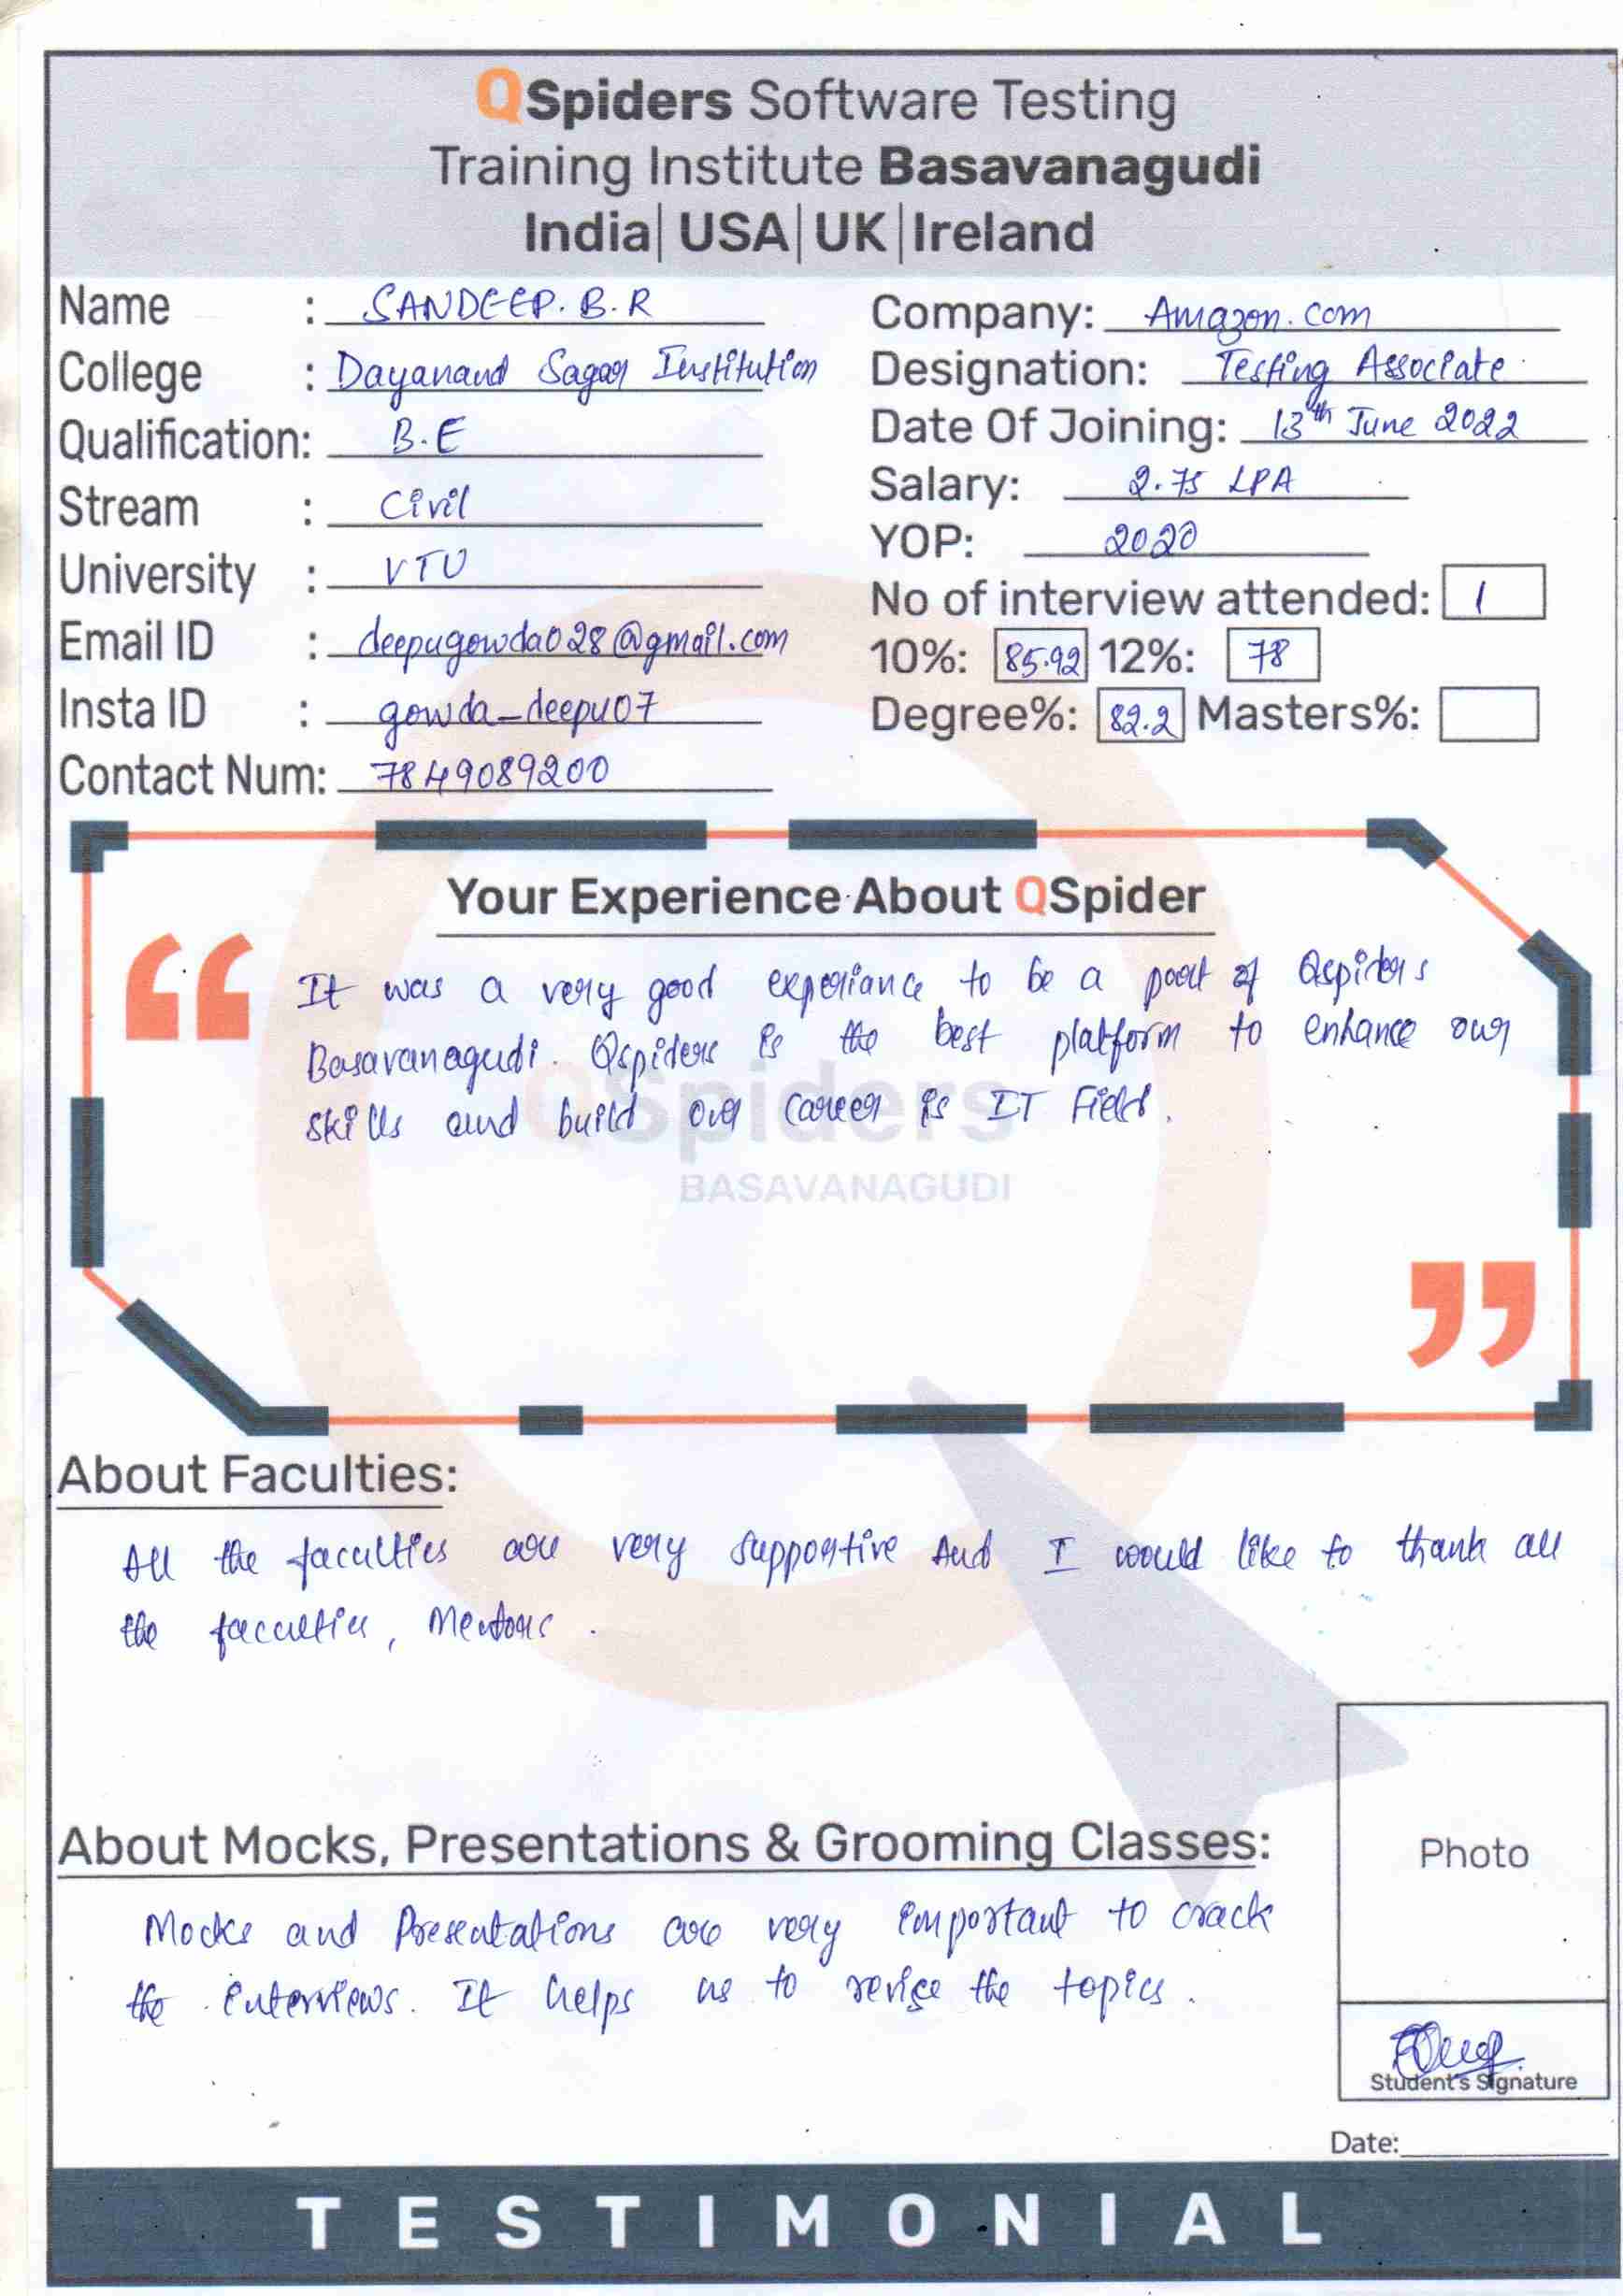 QSpiders Software Testing
Training Institute Basavanagudi
India| USA| UK |Ireland
Name : SANDEEP. B. R
College : Dayanand Sagar Institution
Qualification: B.E
Stream : Civil
University : VTU
Email ID : deepugowda028@gmail.com
Insta ID : gowda_deepu07
Contact Num: 7849089200
Company: Amazon.com
Designation: Testing Associate
Date Of Joining: 13th June 2022
Salary: 2.75 LPA
YOP: 2020
No of interview attended: 1
10%: 85.92 12%: 78
Degree%: 82.2 Masters%:
Your Experience About QSpider
“
It was a very good experiance to be a part of Qspiders
Basavanagudi. Qspiders is the best platform to enhance our
skills and build our career is IT Field.
QSpiders
BASAVANAGUDI
”
About Faculties:
All the faculties are very supportive And I would like to thank all
the faculties, Mentors.
About Mocks, Presentations & Grooming Classes:
Mocks and Presentations are very important to crack
the interviews. It helps us to revise the topics.
Photo
Student's Signature
Date:
TESTIMONIAL